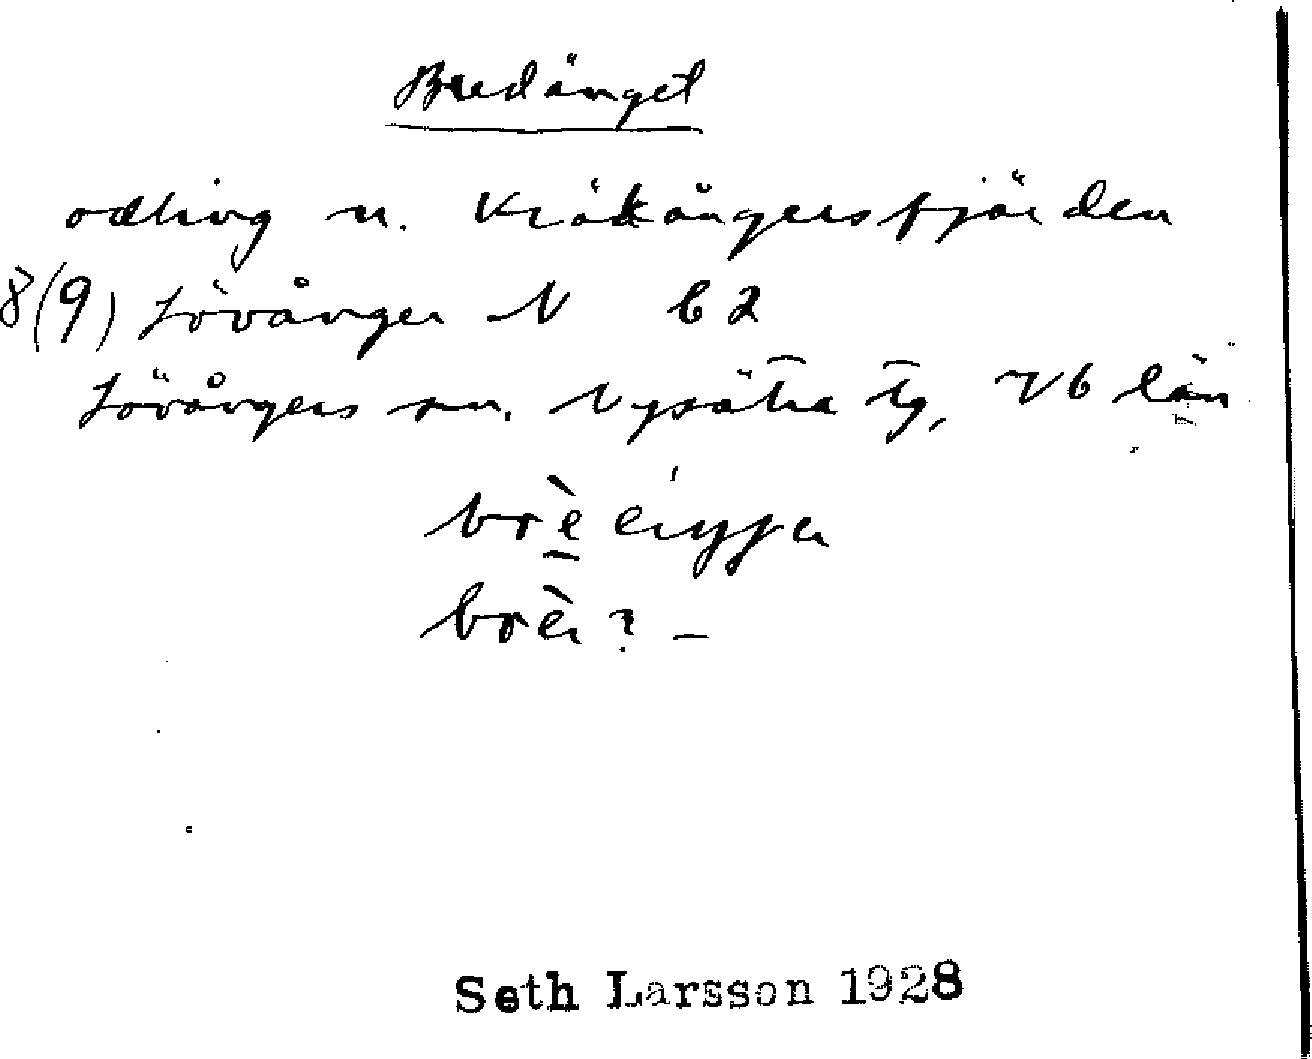 Bredänget
odling n. Kråkångersfjärden
8(9) Lövånger N b2
Lövångers sn. Nysätra tg, Vb län
brè
brè ? –
Seth Larsson 1928